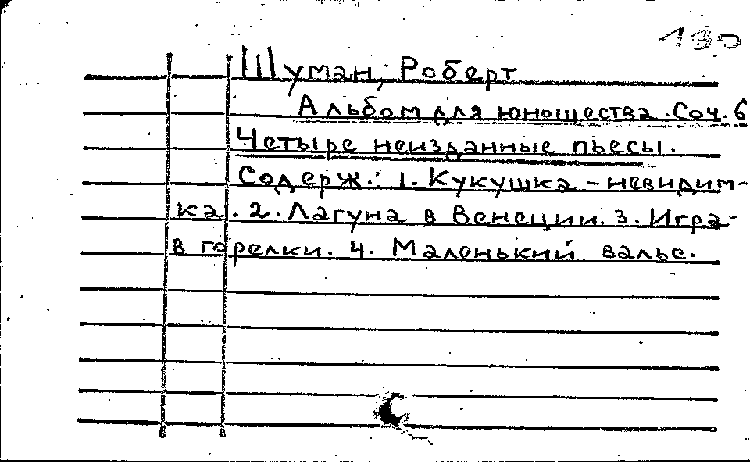 130
Шуман, Роберт
Альбом для юношества. Соч. 6
Четыре неизданные пьесы.
Содерж.: 1. Кукушка – невидим-
ка. 2. Лагуна в Венеции. 3. Игра
в горелки. 4. Маленький вальс.